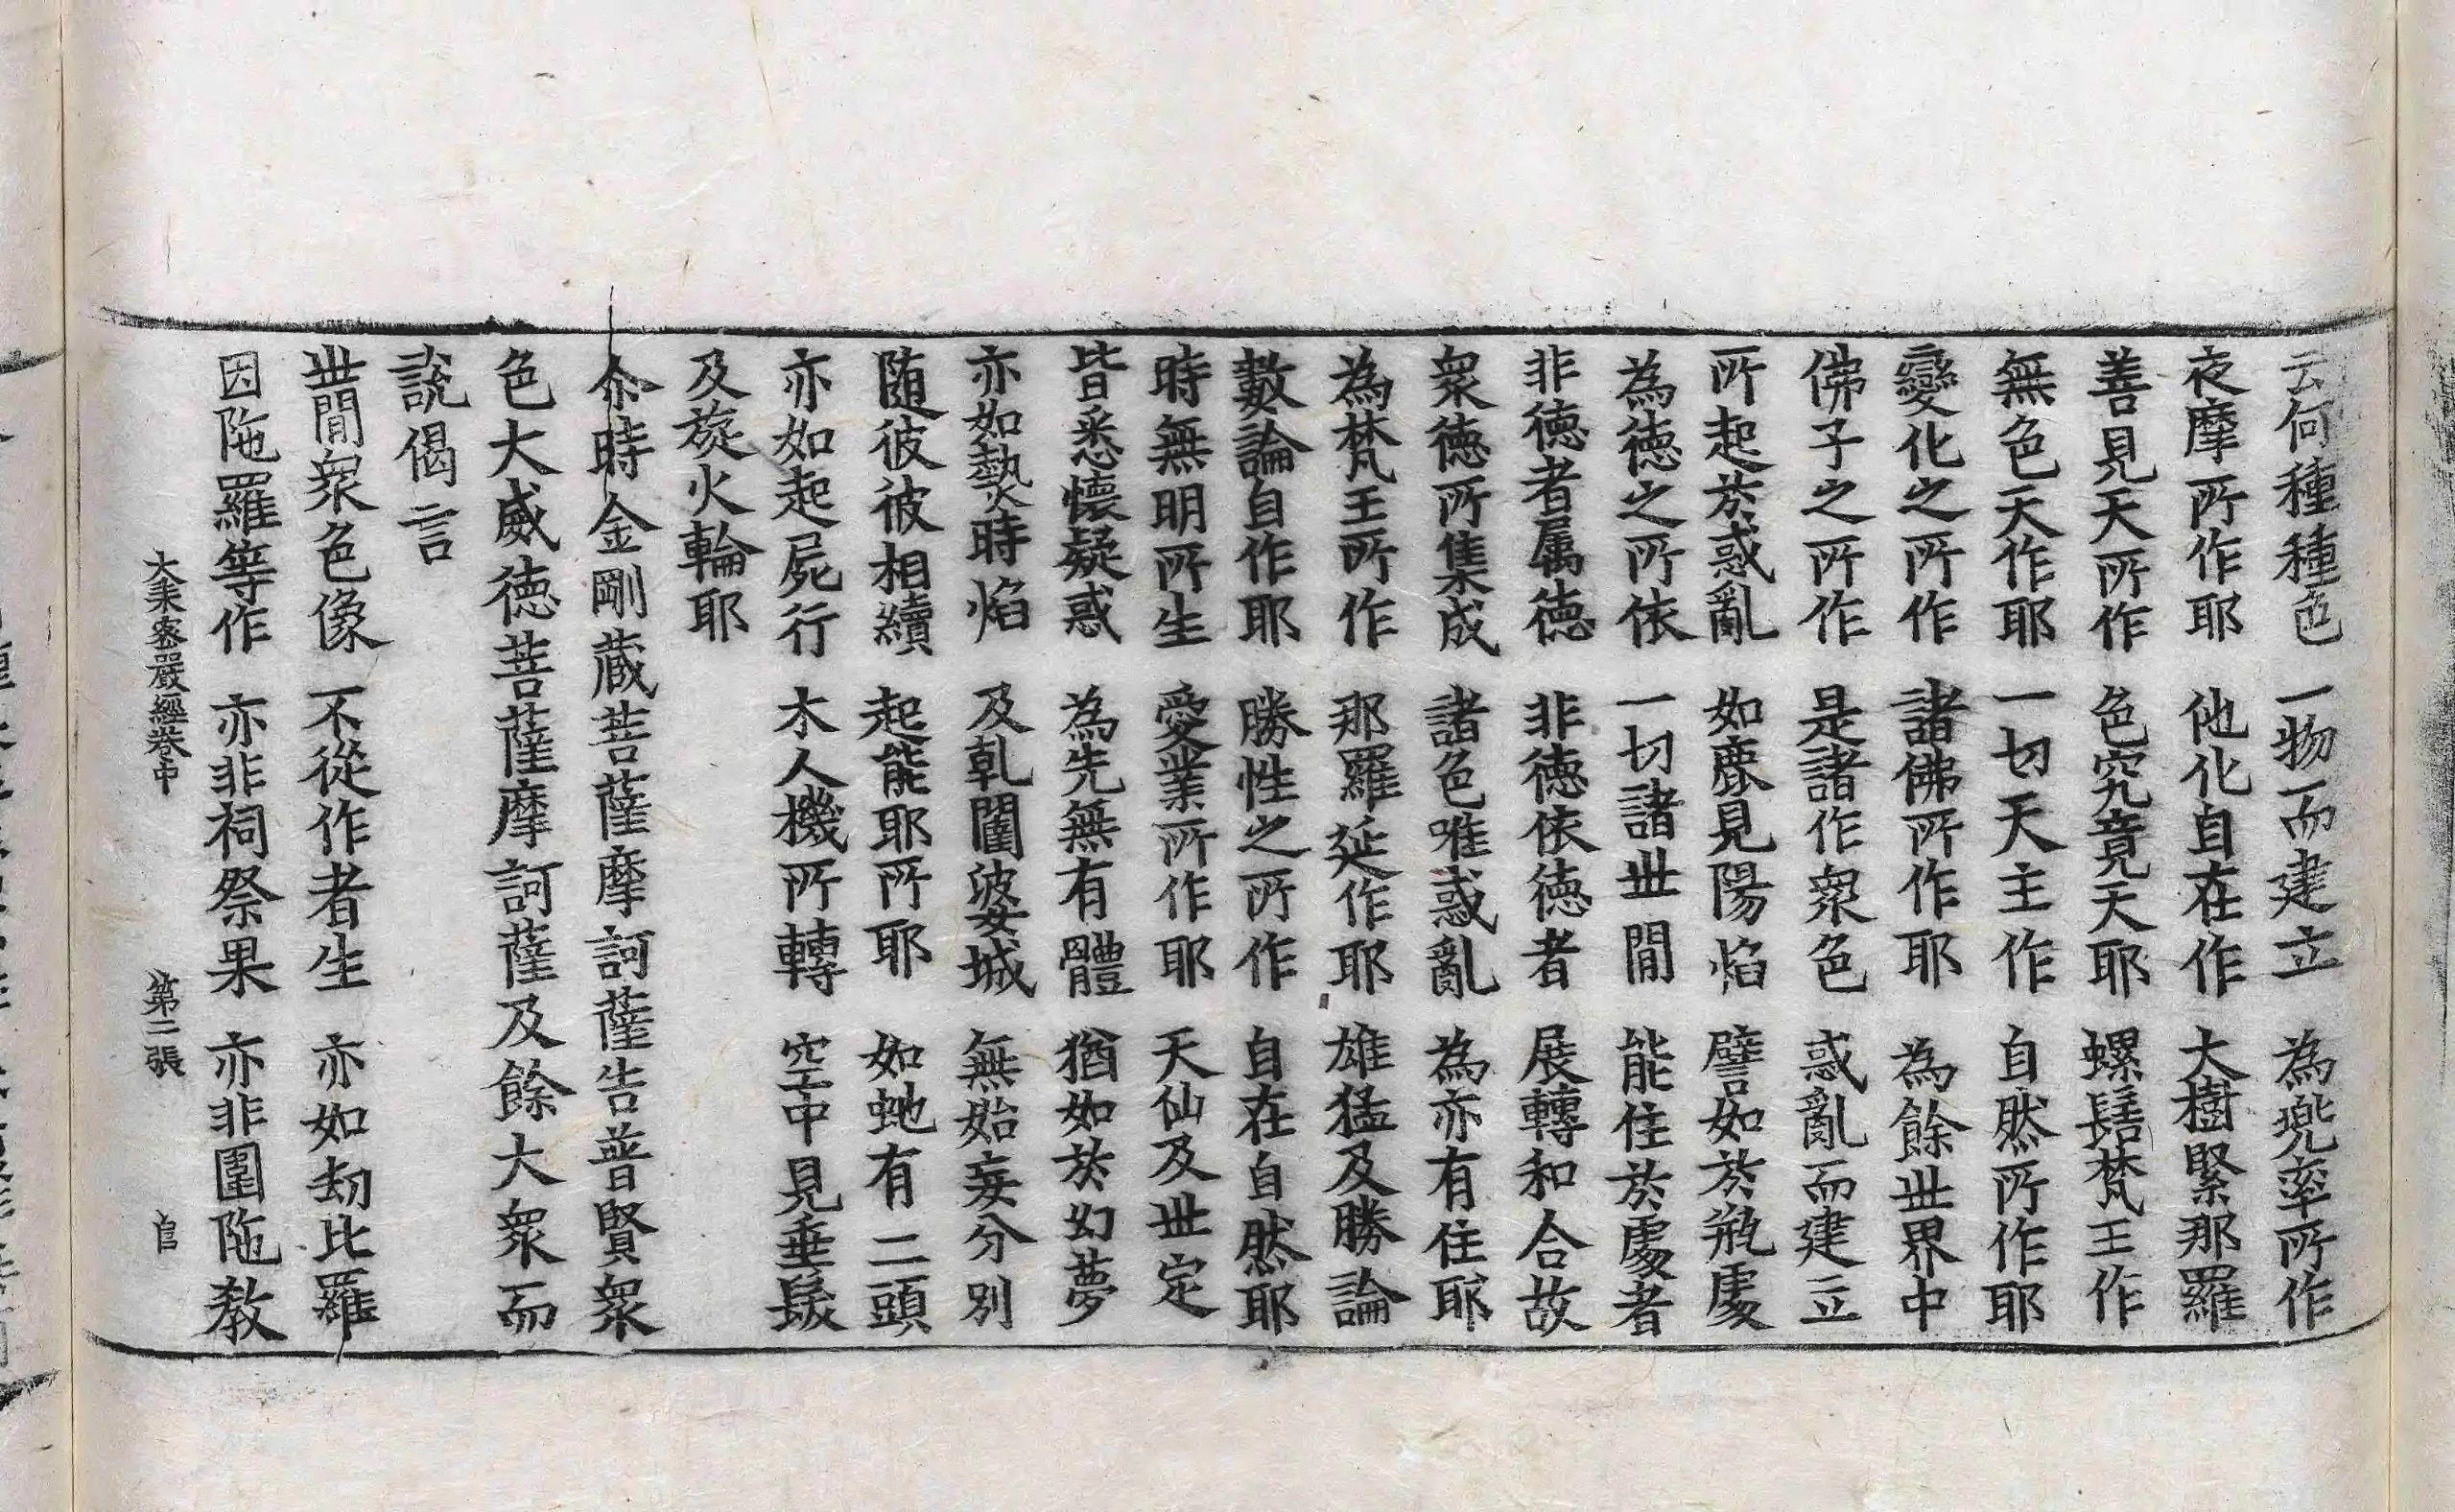 云何種種色 一物而建立 為兜率所作
夜摩所作耶 他化自在作 大樹緊那羅
善見天所作 色究竟天耶 螺髻梵王作
無色天作耶 一切天主作 自然所作耶
變化之所作 諸佛所作耶 為餘世界中
佛子之所作 是諸作衆色 惑亂而建立
所起於惑亂 如鹿見陽焰 譬如於瓶處
為德之所依 一切諸世間 能住於處者
非德者属德 非德依德者 展轉和合故
衆德所集成 諸色唯惑亂 為亦有住耶
為梵王所作 那羅延作耶 雄猛及勝論
數論自作耶 勝性之所作 自在自然耶
時無明所生 愛業所作耶 天仙及世定
皆悉懷疑惑 為先無有體 猶如於幻夢
亦如熱時焰 及乹闥婆城 無始妄分別
随彼彼相續 起能耶所耶 如虵有二頭
亦如起屍行 木人機所轉 空中見垂髮
及旋火輪耶
尒時金剛藏菩薩摩訶薩告普賢衆
色大威德菩薩摩訶薩及餘大衆而
說偈言
世間衆色像 不從作者生 亦如劫比羅
因陁羅等作 亦非祠祭果 亦非圍陁教
大乘密嚴經卷中 第二張